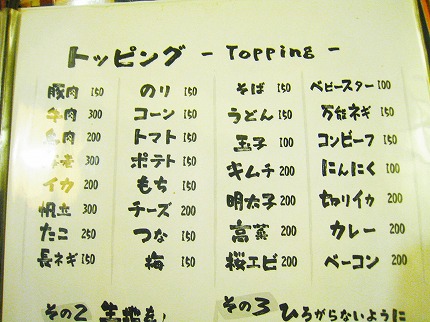 トッピング - Topping -
豚肉 150
牛肉 300
鳥肉 200
300
イカ 200
帆立 300
たこ 250
長ネギ 150
のり 150
コーン 150
トマト 150
ポテト 150
もち 150
チーズ 200
つな 150
梅 150
そば 150
うどん 150
玉子 100
キムチ 200
明太子 200
高菜 200
桜エビ 200
ベビースター 100
万能ネギ 150
コンビーフ 150
にんにく 100
切りイカ 200
カレー 200
ベーコン 200
その2
その3 ひろがらないように